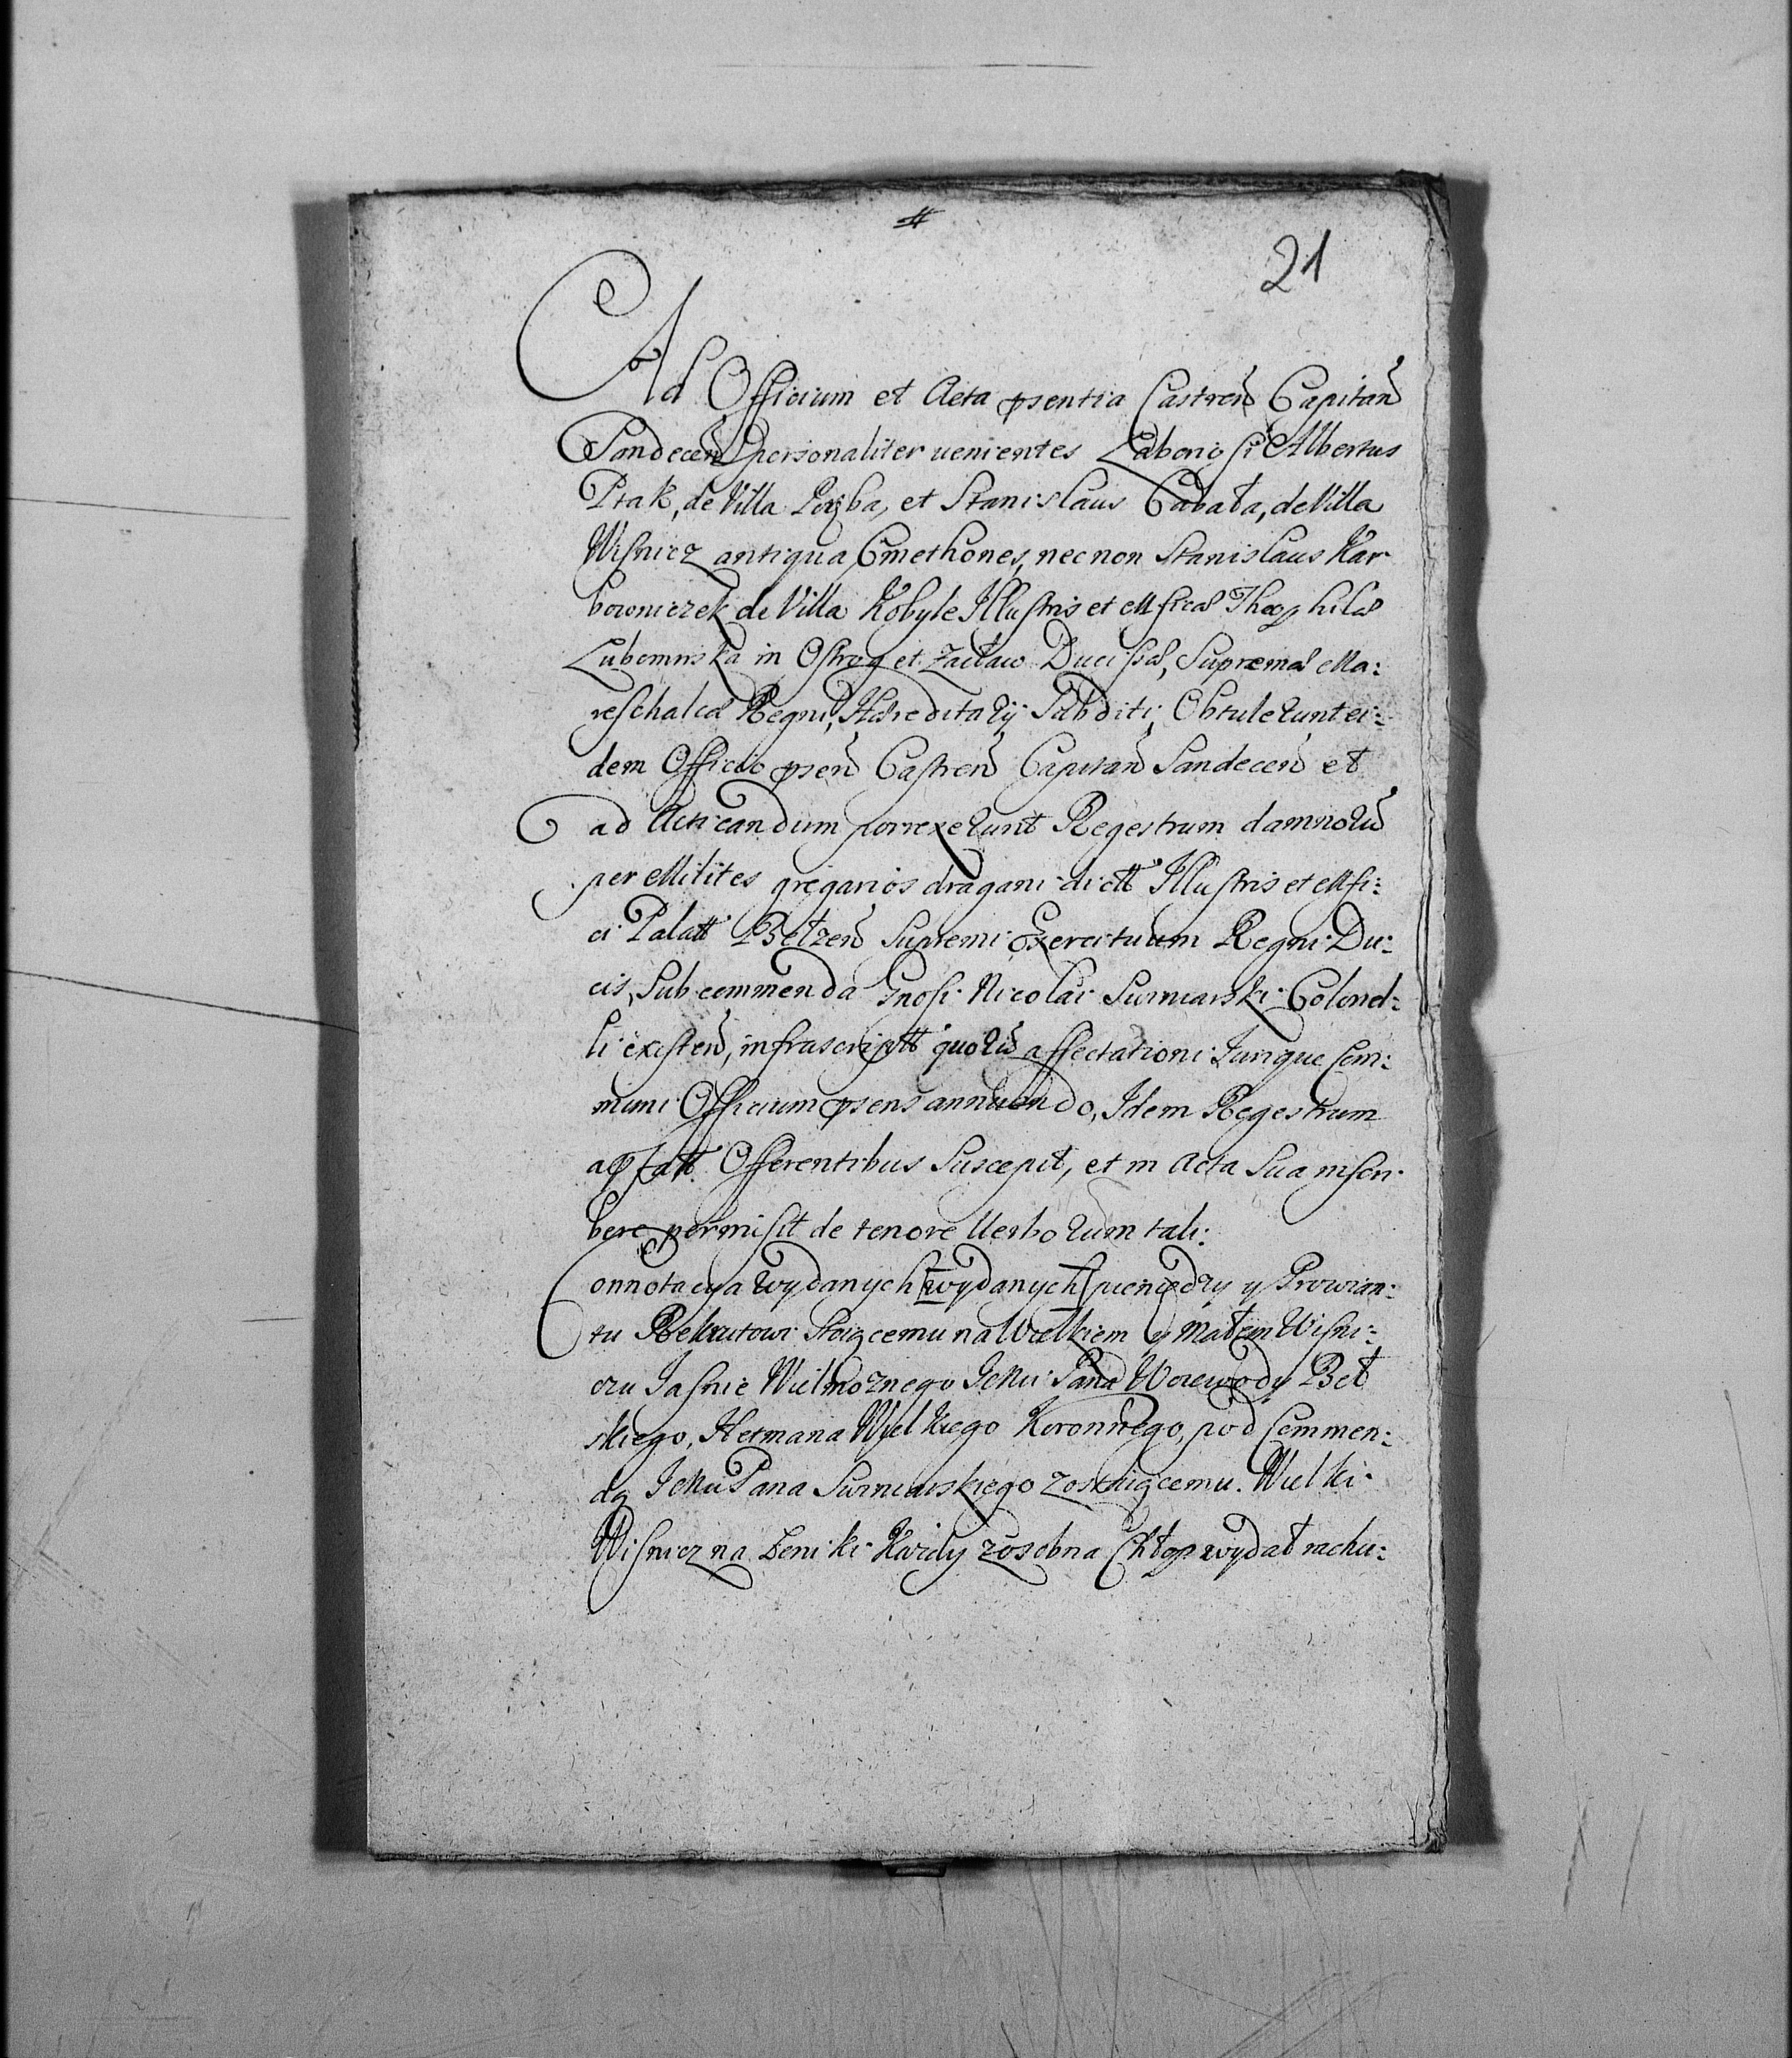 #
21
Ad Officium et Acta psentia Castren Capitan
Sandecen personaliter uenientes Laboriosi Albertus
Ptak, de Villa Porąba, et Stanislaus Gabała, de Villa
Wisnicz antiqua Cmethones, nec non Stanislaus Kar
bowniczek de Villa Kobyle Illustris et Mficæ Theophilæ
Lubomirska in Ostrog et Zasław Ducissæ, Supremæ Ma:
reschalcæ Regni, Hæreditarÿ Subditi, Obtulerunt ei:
dem Officio psen Castren Capitan Sandecen et
ad Acticandum porrexerunt Regestrum damnorū
per Milites gregarios dragani dictt Illustris et Mfi:
ci Palatt Bełzen Supremi Exercituum Regni Du:
cis, Sub commenda Gnosi Nicolai Surniawski Colonel:
li existen, infrascriptt quorū affectationi Iurique Com:
muni Officium psens annuendo, Idem Regestrum
a pfatt Offerentibus Suscepit, et in Acta Sua inscri
bere permisit de tenore Uerborum tali:
Connotacya wydanych wydanych pieniędzy y Prowian:
tu Rekrutowi Stoiącemu na Wielkiem y Małem Wisni:
czu Jasnie Wielmoznego Jmci Pana Woiewody Beł
skiego, Hetmana Wielkiego Koronnego, pod Commen:
dą Jmci Pana Surniawskiego zostaiącemu. Wielki
Wisnicz na Leniki Kozdy zosobna Chłop wydał rachu: